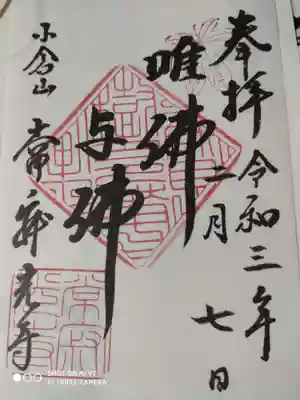 奉拝
令和三年
二月
七日
唯佛
与佛
小倉山
常寂光寺
SHOT ON MI 9T
AI TRIPLE CAMERA